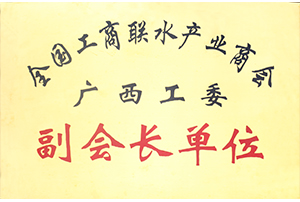 全国工商联水产业商会
广西工委
副会长单位